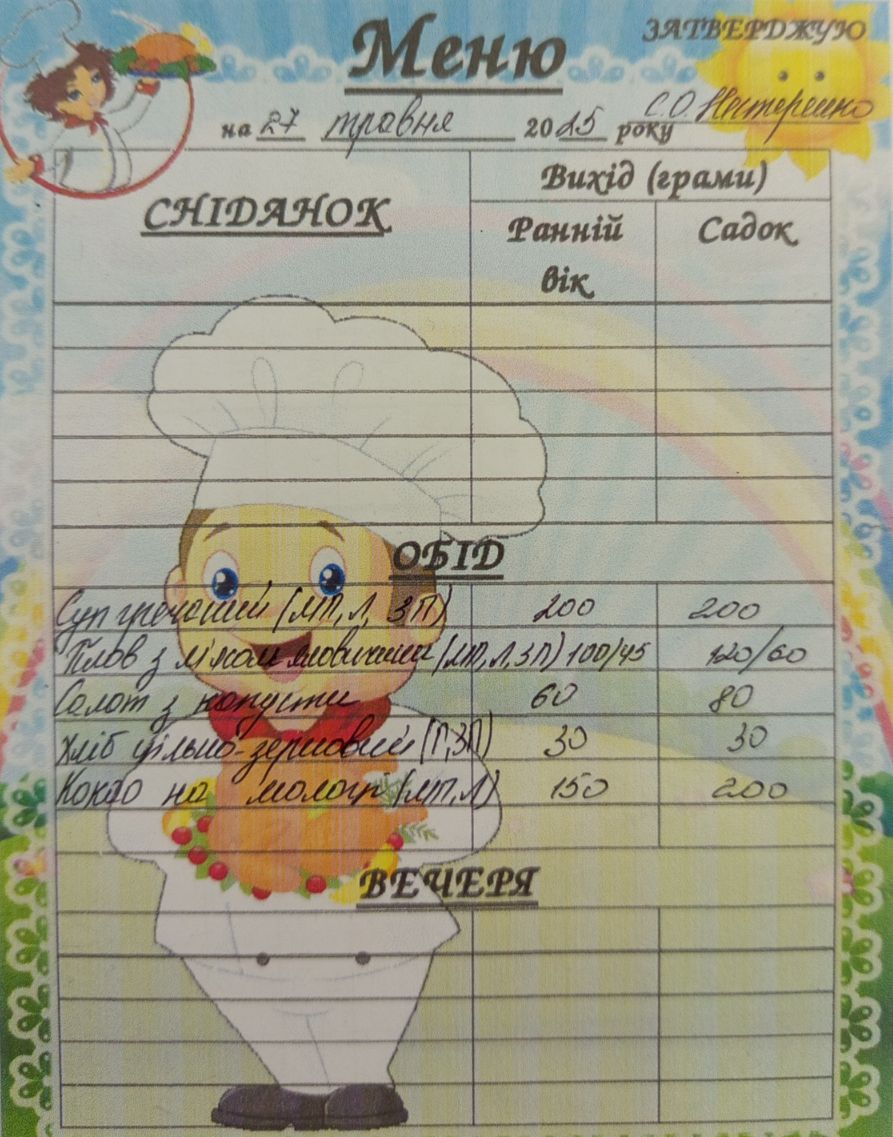 ЗАТВЕРДЖУЮ
Меню
С.О. Нестеренко
на 27 травня 2025 року
СНІДАНОК
Вихід (грами)
Ранній вік
Садок
ОБІД
Суп гречаний (МП, Л, ЗП) 200 200
Плов з м'ясом яловичий (МП, Л, ЗП) 100/45 120/60
Салат з капусти 60 80
Хліб цільно-зерновий (Г, ЗП) 30 30
Какао на молоці (МП, Л) 150 200
ВЕЧЕРЯ